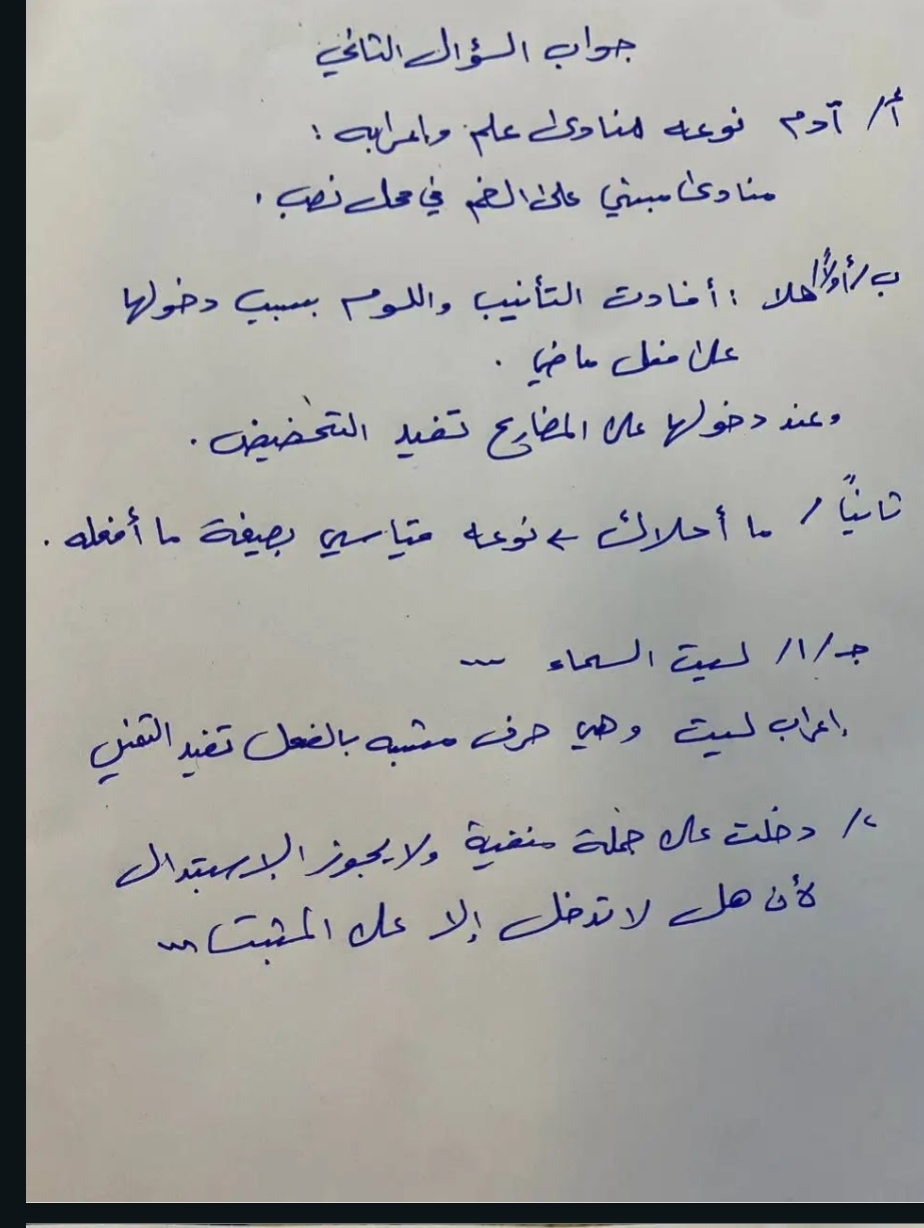 جواب السؤال الثاني
أ/ آدم نوعه منادى علم وإعرابه :
منادى مبني على الضم في محل نصب .
ب/أولاً/ هلا : أفادت التأنيب واللوم بسبب دخولها
على فعل ماضي .
وعند دخولها على المضارع تفيد التحضيض .
ثانياً / ما أحلاك ← نوعه قياسي بصيغة ما أفعله .
جـ/١/ ليت السماء ...
إعراب ليت وهي حرف مشبه بالفعل تفيد التمني
٢/ دخلت على جملة منفية ولا يجوز الاستبدال
لأن هل لا تدخل إلا على المثبت ...